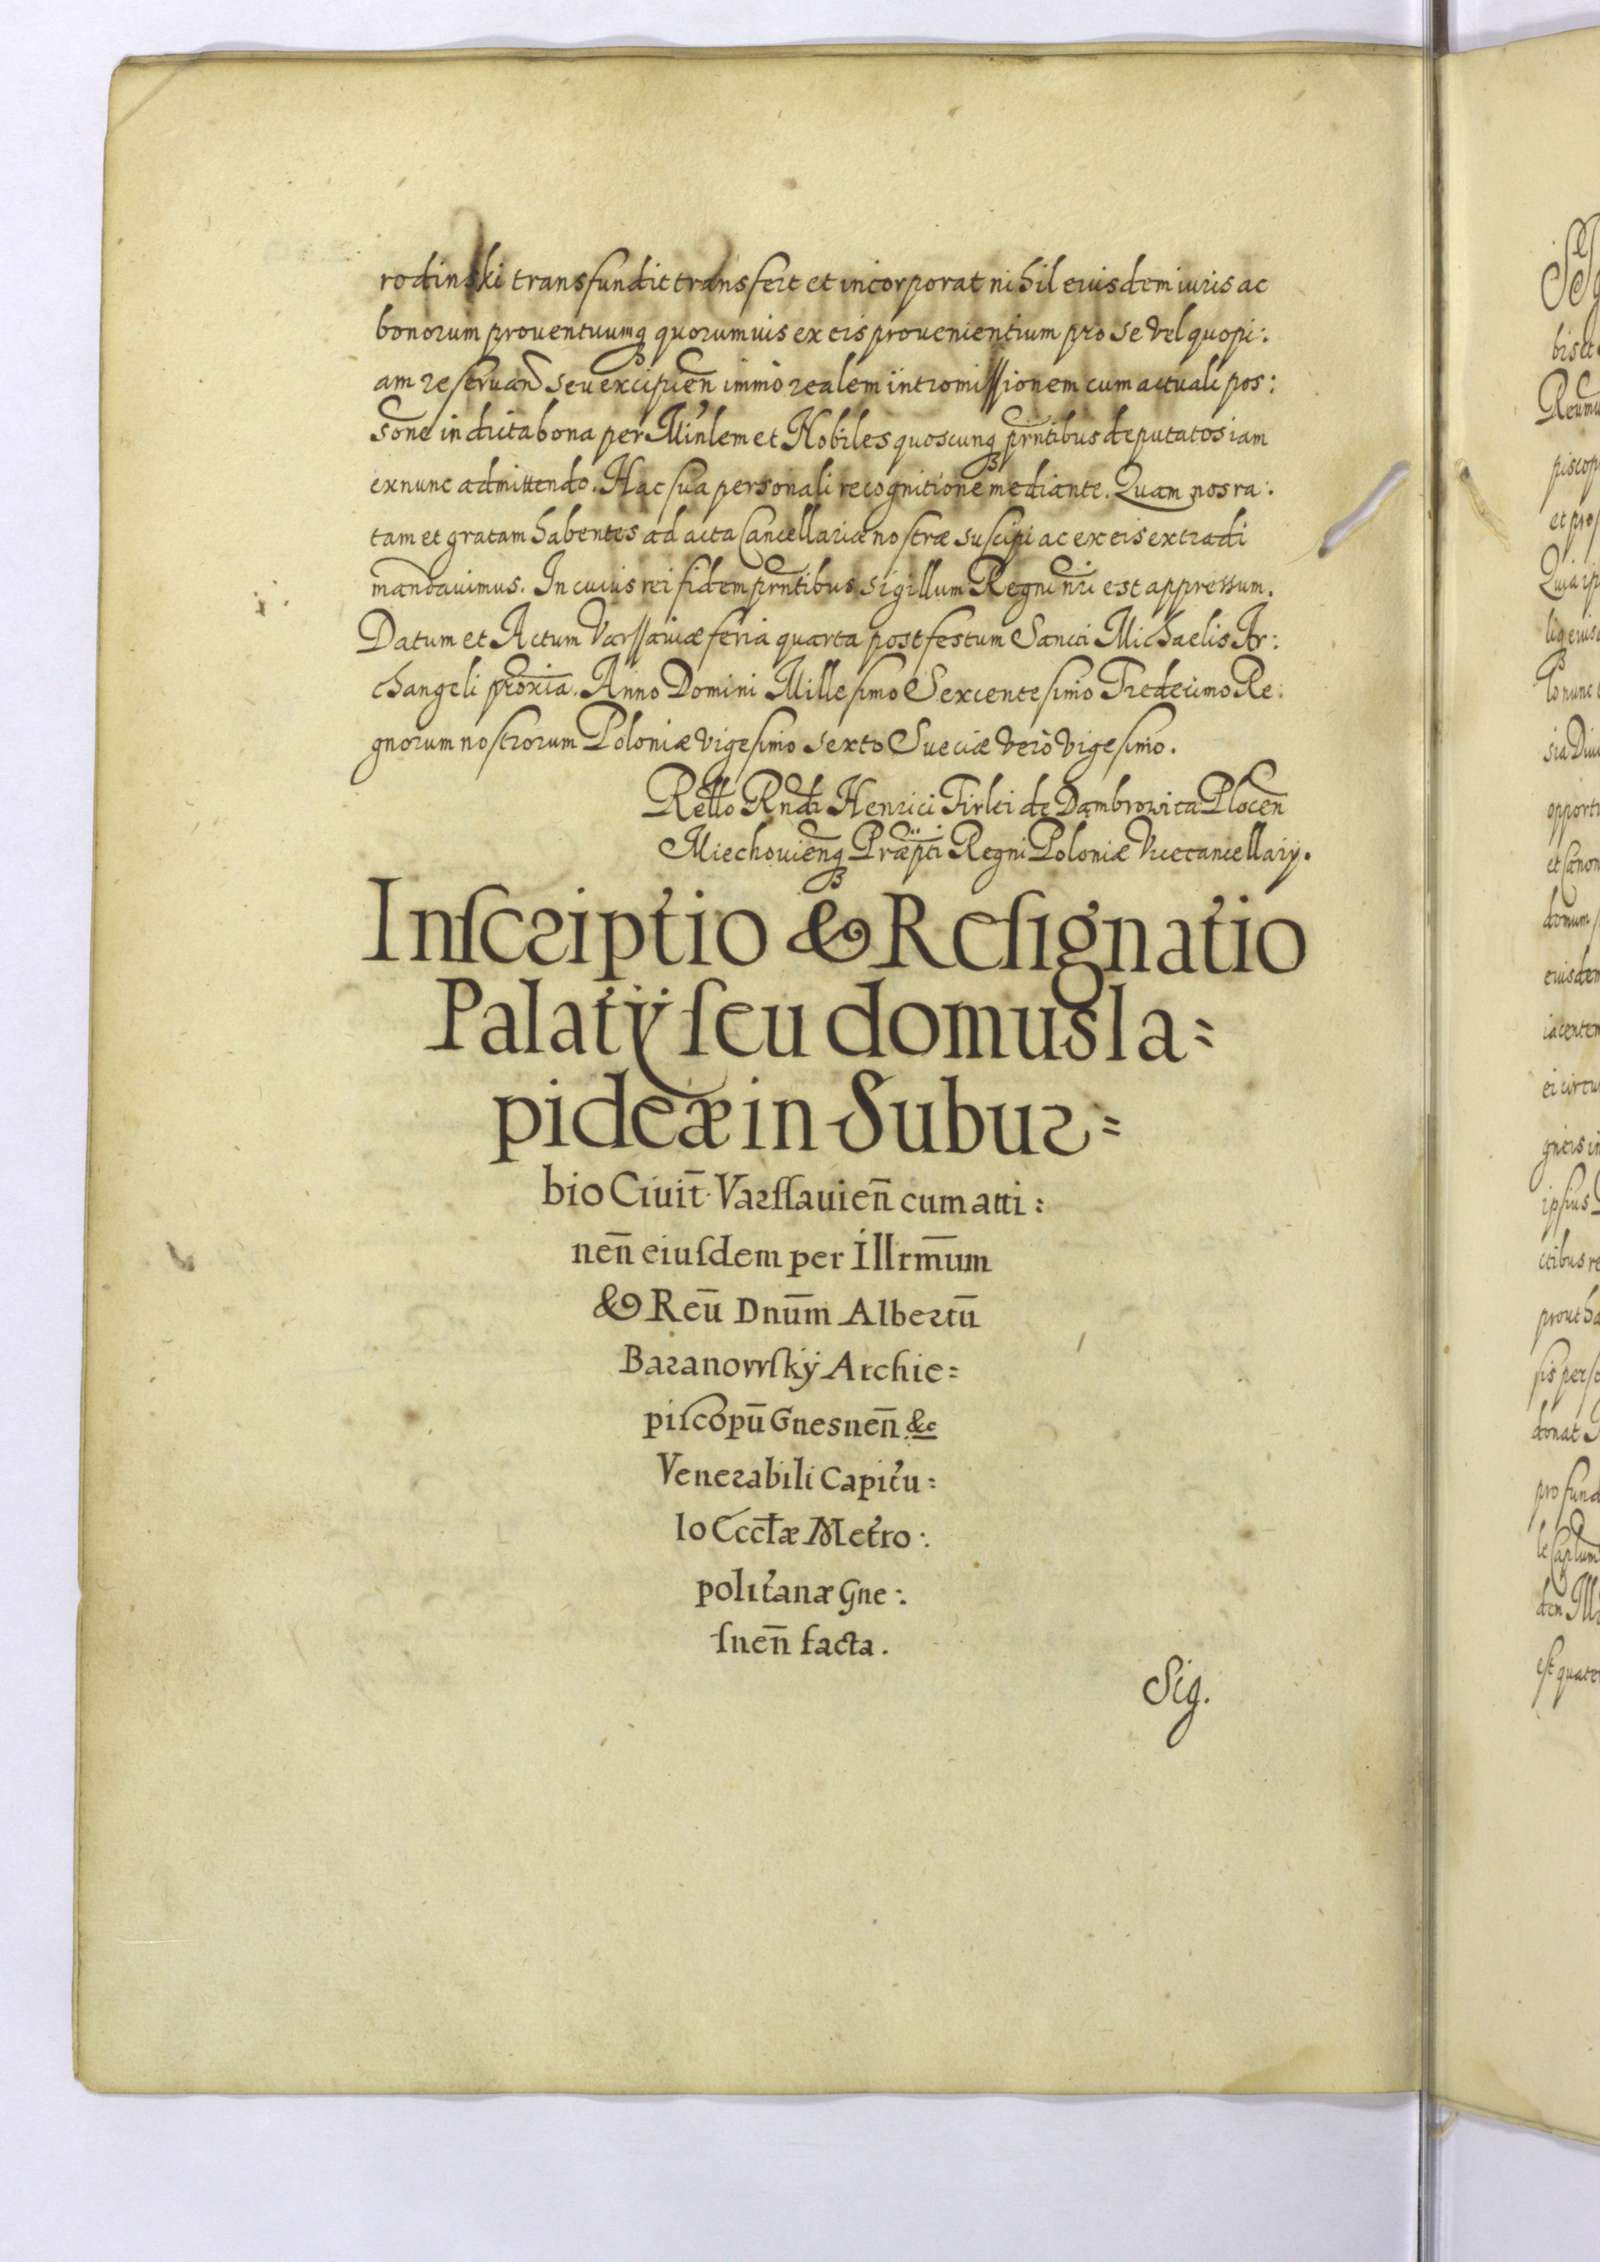 rodinski transfundit transfert et incorporat nihil eiusdem iuris ac
bonorum prouentuumq quorumuis ex eis prouenientium pro se vel quopi:
am reseruan̄ seu excipien̄ immò realem intromissionem cum actuali pos:
sōne in dicta bona per Min̄lem et Nobiles quoscunq prn̄tibus deputatos iam
ex nunc admittendo. Hac sua personali recognitione mediante. Quam nos ra:
tam et gratam habentes ad acta Cancellariæ nostræ suscipi ac ex eis extradi
mandauimus. In cuius rei fidem prn̄tibus sigillum Regni nr̄i est appressum.
Datum et Actum Varssauiæ feria quarta post festum Sancti Michaelis Ar:
changeli prox̄ia. Anno Domini Millesimo Sexcentesimo Tredecimo Re:
gnorum nostrorum Poloniæ vigesimo sexto Sueciæ verò vigesimo.
Rell̄o Rn̄di Henrici Firlei de Dąmbrowica Plocen̄
Miechouien̄q Præp̄ti Regni Poloniæ Vicecancellarÿ.
Inſcriptio & Reſignatio
Palatÿ ſeu domus la=
pideæ in Subur=
bio Ciuit̄. Varſſauien̄ cum atti:
nen̄ eiuſdem per Illrm̄um
& Reū Dnūm Albertū
Baranowſkÿ Archie=
piſcopū Gnesnen̄ &c
Venerabili Capitu=
lo Eccl̄æ Metro:
politanæ Gne:
ſnen̄ facta.
Sig.